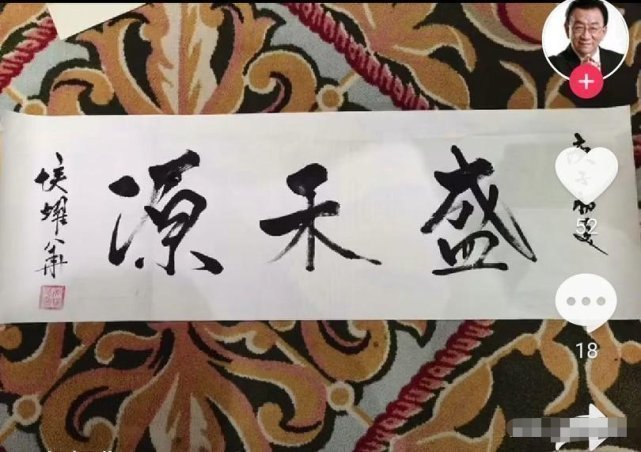 盛禾源
侯耀華
52
18